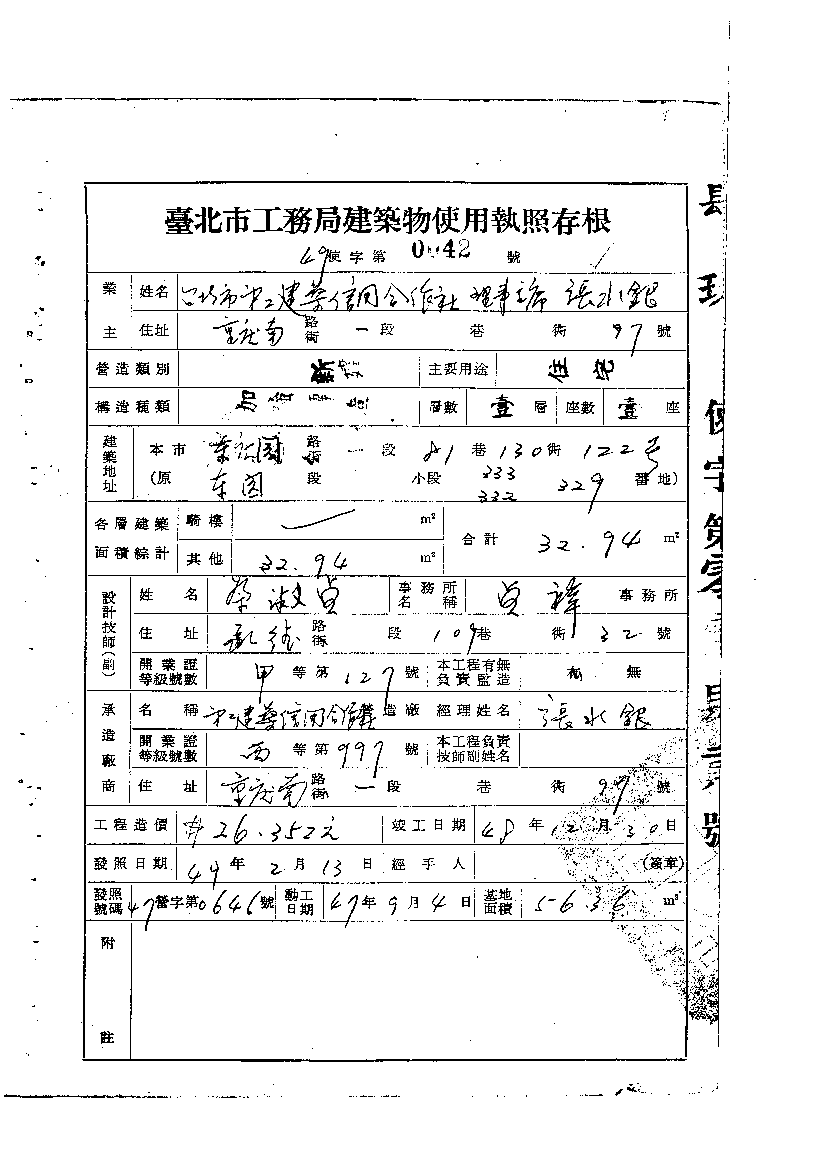 臺北市工務局建築物使用執照存根
49使字第0042號
業主 姓名 台北市第二建築信用合作社 理事主席 張水銀
住址 重慶南路街一段 巷 街 97號
營造類別 新 主要用途 住宅
構造種類 加強磚造 層數 壹層 座數 壹座
建築地址 本市 路街一段81巷130街122号
(原 東園 段 小段 333 332 329 番地)
各層建築面積綜計 騎樓 m² 合計 32.94 m²
其他 32.94 m²
設計技師(副) 姓名 蔡淑貞 事務所名稱 貞禕 事務所
住址 承德路街 段109巷 街32號
開業證等級號數 甲等第127號 本工程有無負責監造 有 無
承造廠商 名稱 第二建築信用合作社營造廠 經理姓名 張水銀
開業證等級號數 丙等第997號 本工程負責技師副姓名
住址 重慶南路街一段 巷 街97號
工程造價 #26.352元 竣工日期 48年12月30日
發照日期 49年2月13日 經手人 (簽章)
發照號碼 47營字第0646號 動工日期 47年9月4日 基地面積 56.36 m²
附註
使字第零
號